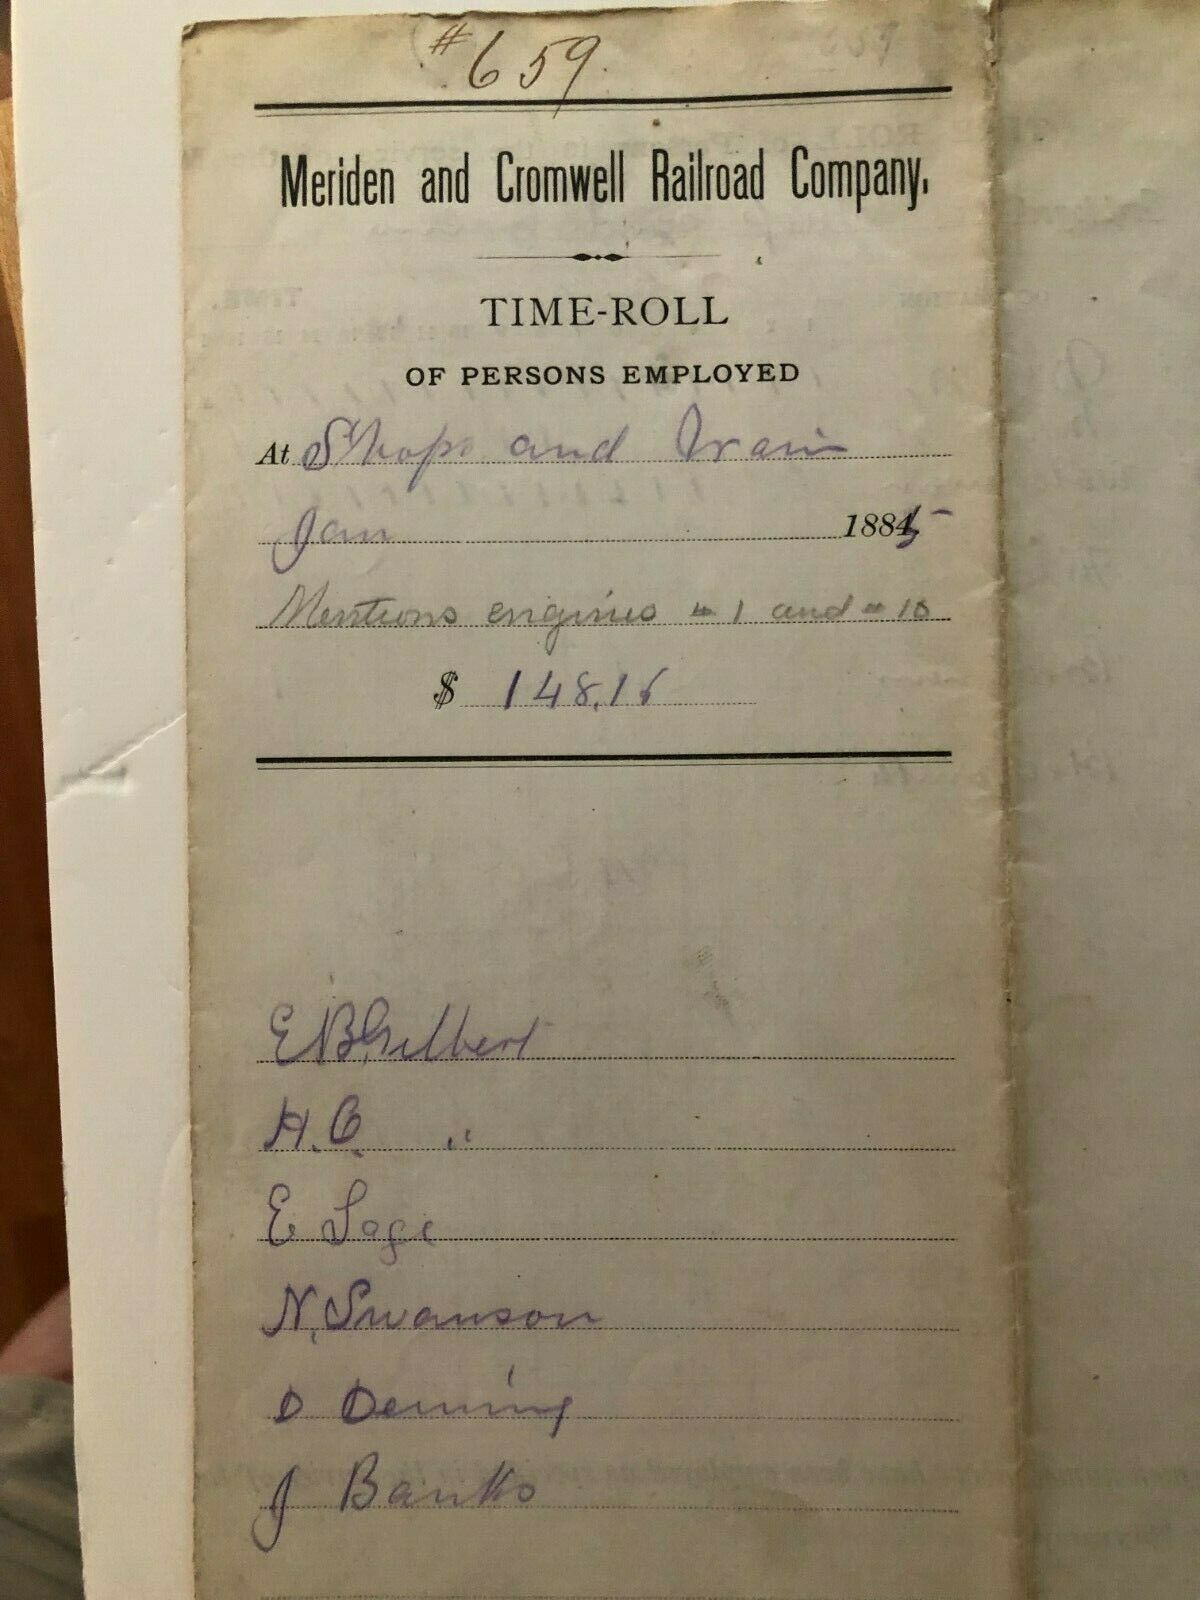 #659.
Meriden and Cromwell Railroad Company.
TIME-ROLL
OF PERSONS EMPLOYED
At Shops and Train
Jan 1885
Mentions engines #1 and #10
$ 148.16
E B Gilbert
H. C. "
E Sage
N. Swanson
D Deming
J Banks